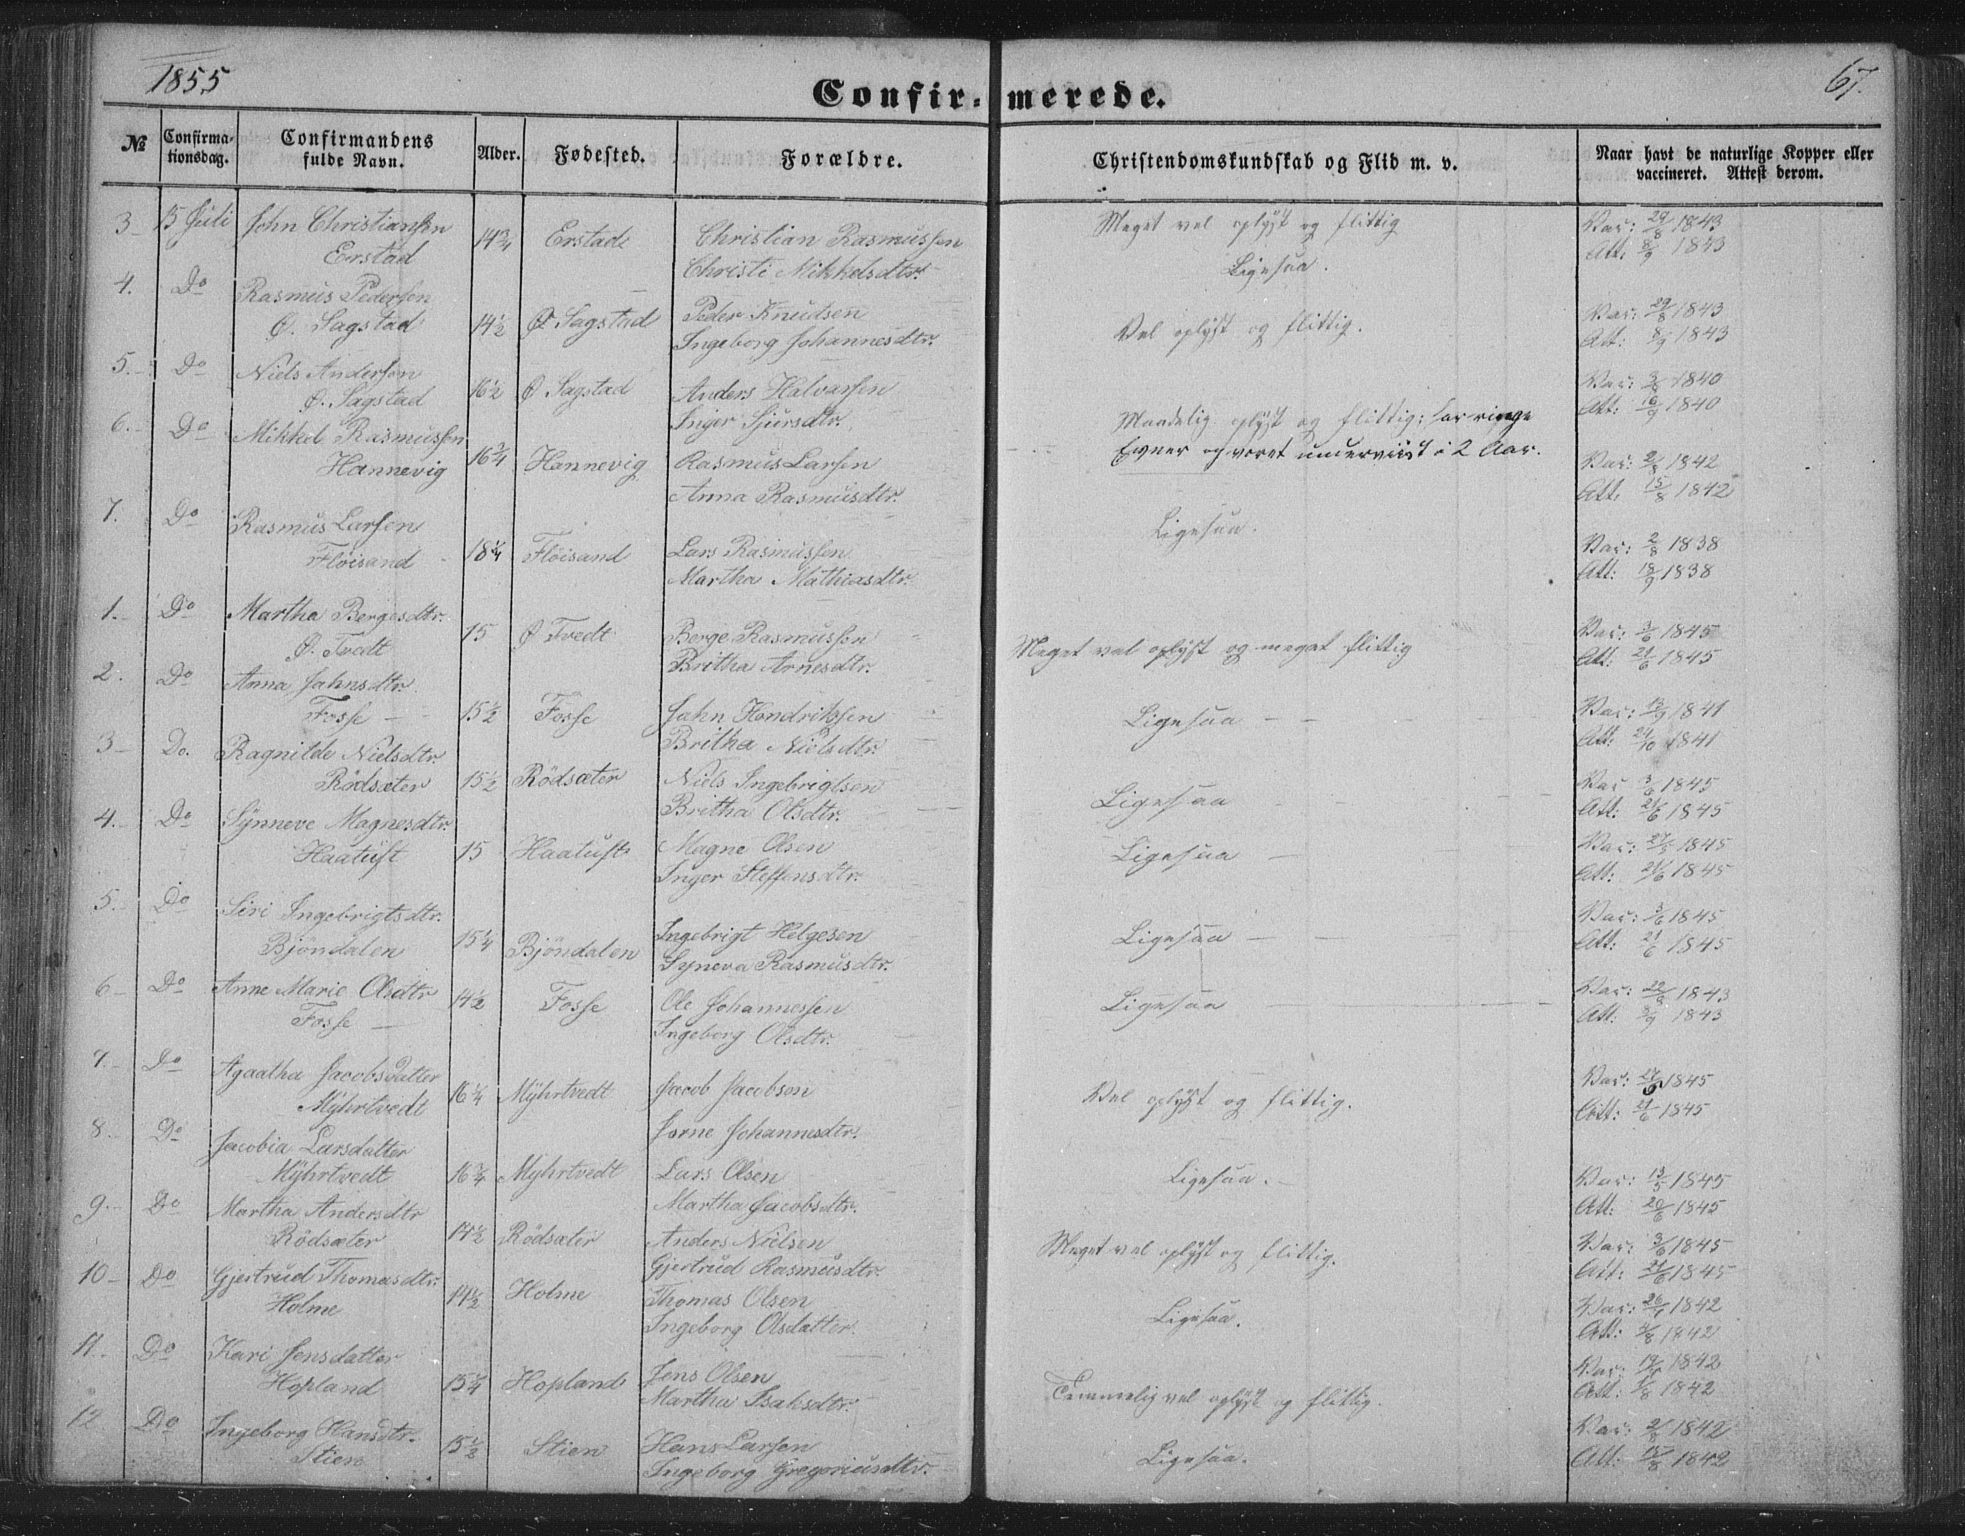 1855
67.
Confirmerede.
№ Confirmationsdag. Confirmandens fulde Navn. Alder. Fødested. Forældre. Christendomskundskab og Flid m. v. Naar havt de naturlige Kopper eller vaccineret. Attest derom.
3 15 Juli John Christiansen Christian Rasmussen Meget vel oplyst og flittig Vac: 29/8 1843
Erstad 14 3/4 Erstad Christi Mikkelsdtr. Att: 8/9 1843
4. Do Rasmus Pedersen Peder Knudsen Ligesaa. Vac: 29/8 1843
Ø. Sagstad 14 1/2 Ø Sagstad Ingeborg Johannesdtr. Att: 8/9 1843
5. Do Niels Andersen Anders Halvorsen Vel oplyst og flittig. Vac: 1840
Ø. Sagstad 16 1/2 Ø Sagstad Inger Sjursdtr. Att: 1840
6. Do Mikkel Rasmussen Rasmus Larsen Maadelig oplyst og flittig; har ringe Vac: 2/8 1842
Hannevig 16 3/4 Hannevig Anna Rasmusdtr. Evner og været underviist i 2 Aar. Att. 15/8 1842
7. Do Rasmus Larsen Lars Rasmussen Ligesaa. Vac: 2/8 1838
Fløisand 18 1/4 Fløisand Martha Mathiasdtr. Att: 18/9 1838
1. Do Martha Bergesdtr. Berge Rasmussen Meget vel oplyst og meget flittig Vac: 3/6 1845
Ø. Tvedt 15 Ø Tvedt Britha Arnesdtr. Att: 21/6 1845
2. Do Anna Jahnsdtr. Jahn Hendriksen Ligesaa Vac: 13/9 1841
Fosse 15 1/2 Fosse Britha Nielsdtr. Att: 24/10 1841
3 Do. Ragnilde Nielsdtr. Niels Ingebrigtsen Ligesaa Vac 3/6 1845
Rödsæter 15 1/2 Rödsæter Britha Olsdtr. Att: 21/6 1845
4. Do Synneve Magnesdtr. Magne Olsen Ligesaa Vac: 27/5 1845
Haatuft 15 Haatuft Inger Steffensdtr. Att: 21/6 1845
5. Do Siri Ingebrigtsdtr. Ingebrigt Helgesen Ligesaa Vac: 3/6 1845
Bjöndalen 15 1/4 Bjöndalen Syneva Rasmusdtr. Att: 21/6 1845
6 Do Anne Marie Olsdtr Ole Johannessen Ligesaa Vac: 29/8 1843
Fosse 14 1/2 Fosse Ingeborg Olsdtr. Att: 8/9 1843
7. Do Agaatha Jacobsdatter Jacob Jacobson Vel oplyst og flittig. Vac: 1845
Mÿhrtvedt 16 1/4 Mÿhrtvedt Johannesdtr. Att: 21/6 1845
8. Do Jacobia Larsdatter Lars Olsen Ligesaa. Vac: 13/5 1845
Mÿhrtvedt 16 3/4 Mÿhrtvedt Martha Jacobsdtr. Att: 20/6 1845
9. Do Martha Andersdtr Anders Nielsen Meget vel oplyst og flittig. Vac: 3/6 1845
Rödsæter 14 1/2 Rödsæter Gjertrud Rasmusdtr. Att: 21/6 1845
10 Do Gjertrud Thomasdtr. Thomas Olsen Ligesaa. Vac: 1842
Holme 14 1/2 Holme Ingeborg Olsdatter Att: 1842
11. Do Kari Jensdatter Jens Olsen Temmelig vel oplyst og flittig. Vac: 1842
Hopland 15 Hopland Martha Isaksdtr. Att: 1842
12 Do Ingeborg Hansdtr. Hans Larsen Ligesaa. Vac: 2/8 1842
Stien 15 1/2 Stien Ingeborg Gregoriusdtr. Att: 15/8 1842